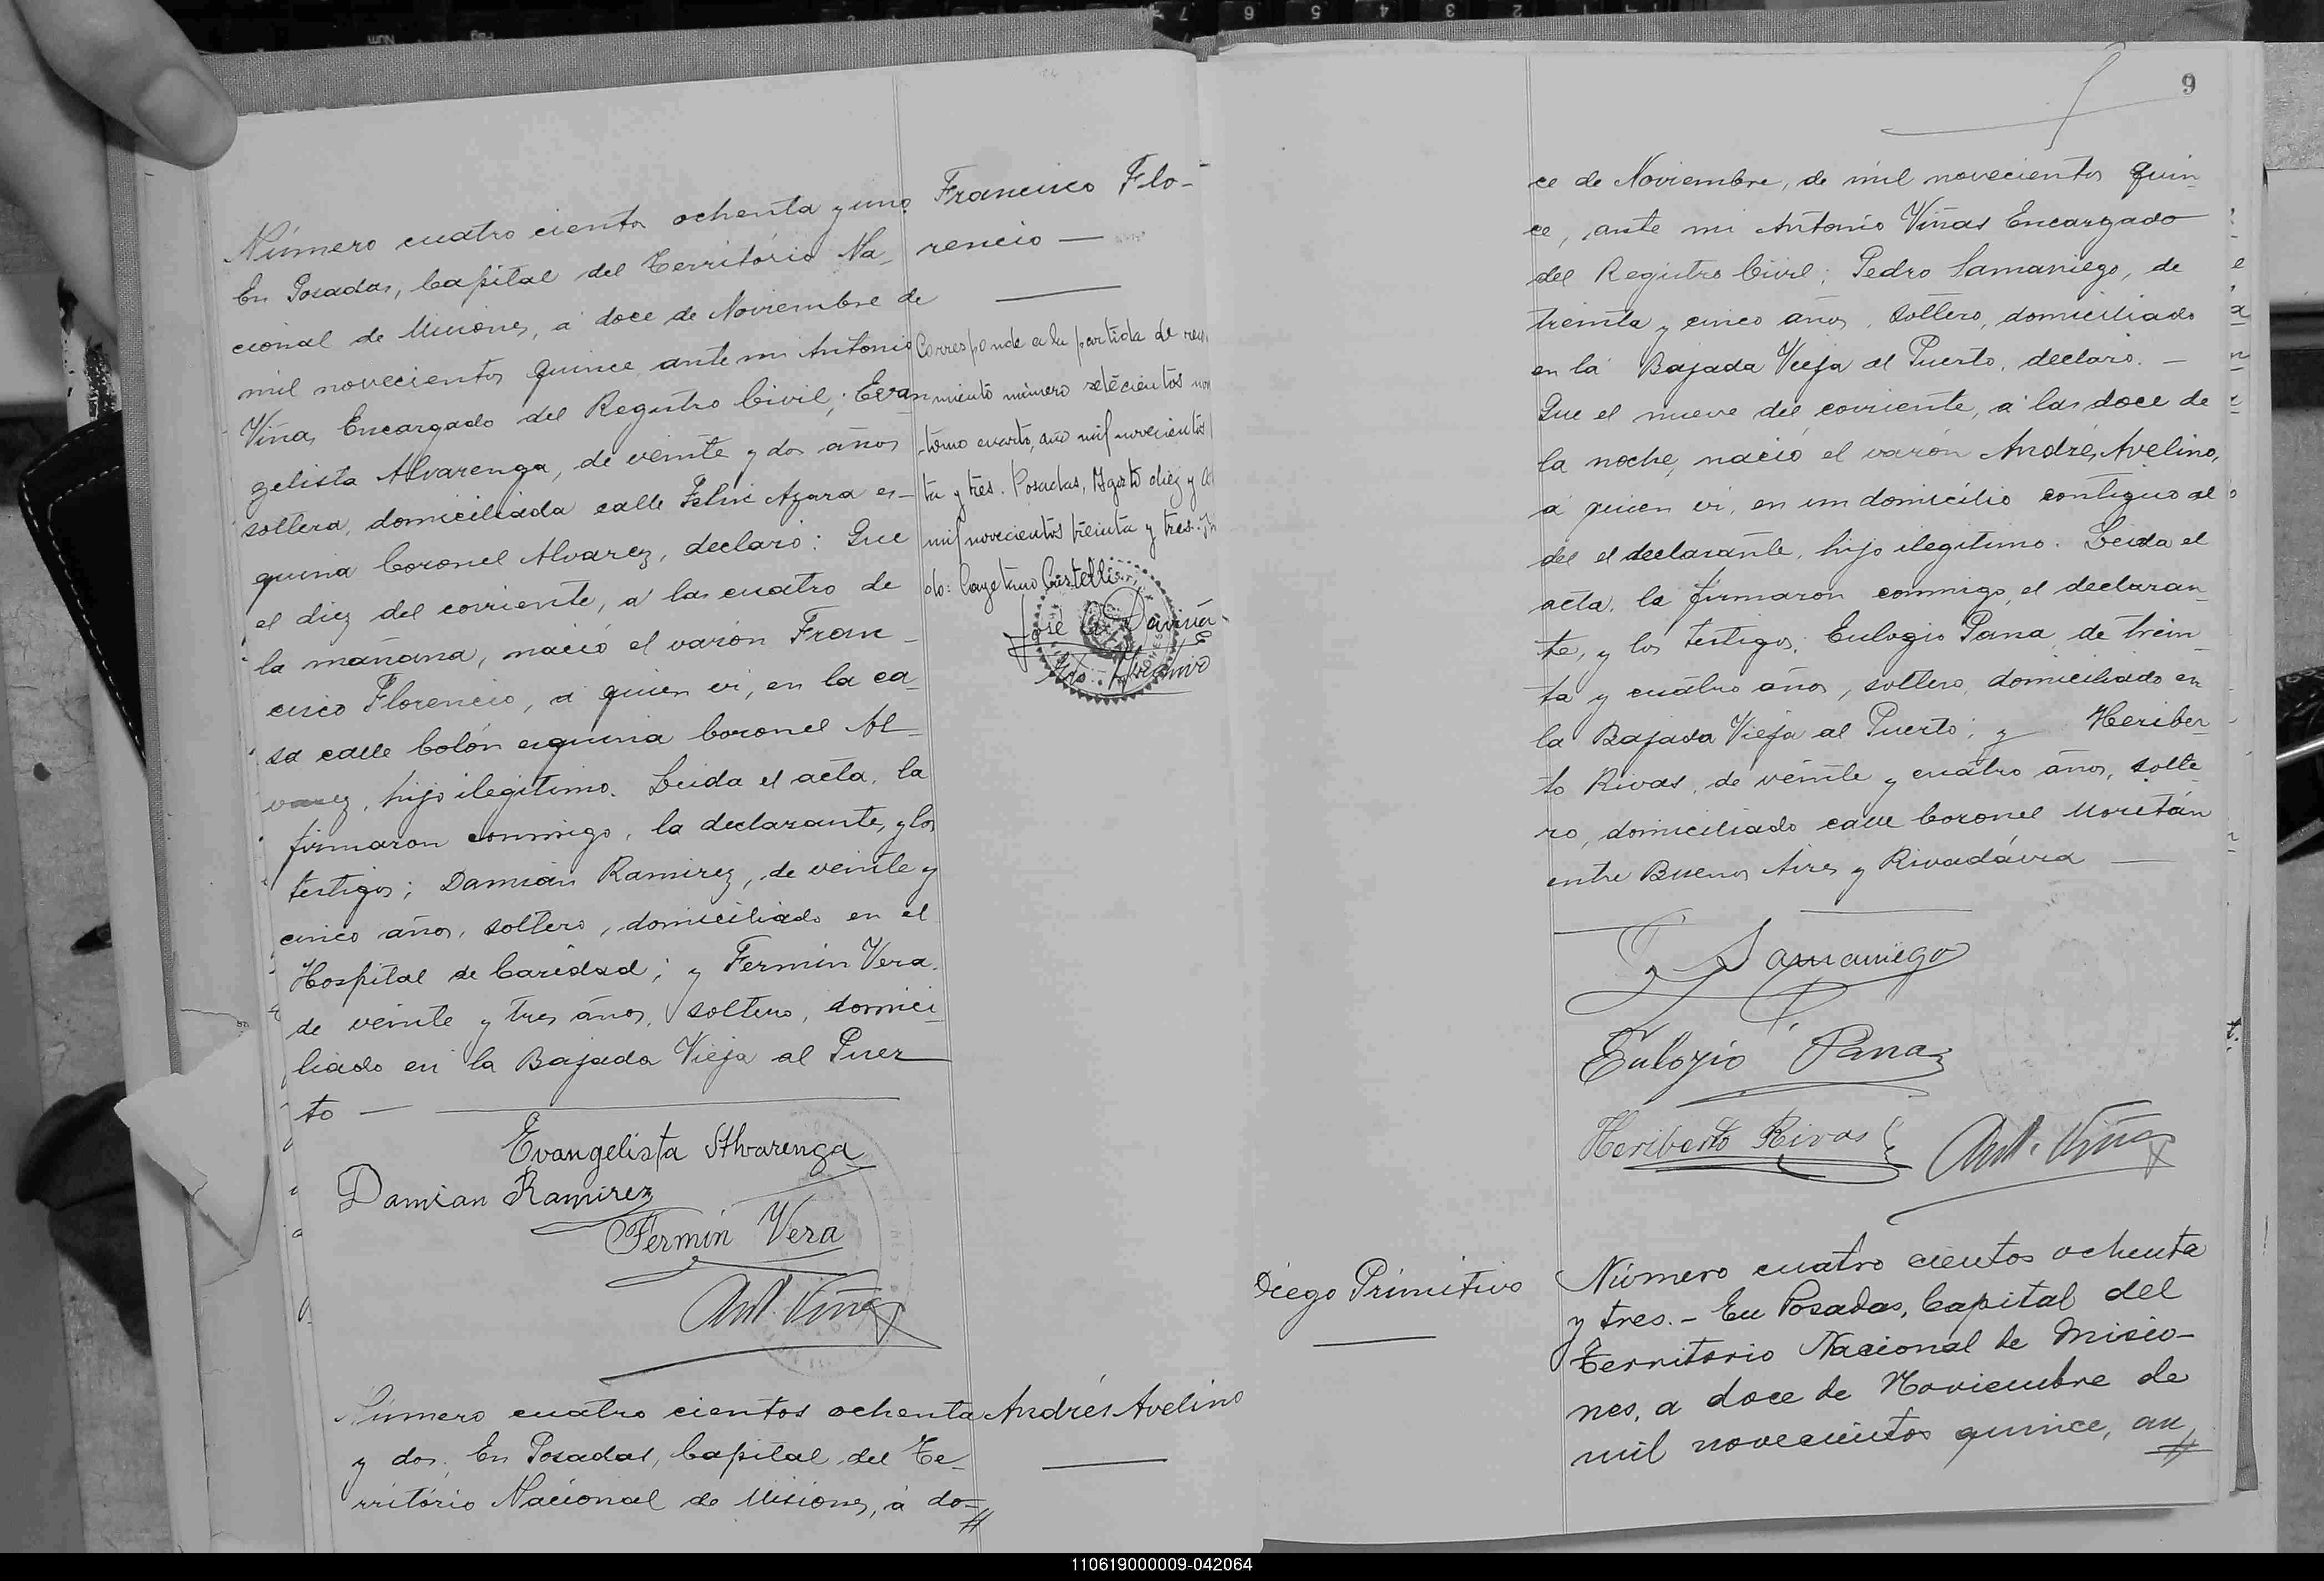 Número cuatro cientos ochenta y uno.
En Posadas, Capital del Território Na-
cional de Misiones, á doce de Noviembre de
mil novecientos quince ante mi Antonio
Viñas, Encargado del Registro Civil; Evan
gelista Alvarenga, de veinte y dos años
soltera, domiciliada calle Felix Azara es-
quina Coronel Alvarez, declaró: Que
el diez del corriente, á las cuatro de
la mañana, nació el varón Fran-
cisco Florencio, á quien vi, en la ca-
sa calle Colón esquina Coronel Al-
varez, hijo ilegitimo. Leida el acta, la
firmaron conmigo, la declarante, y los
testigos; Damián Ramirez, de veinte y
cinco años, soltero, domiciliado en el
Hospital de Caridad; y Fermin Vera
de veinte y tres años, soltero, domici-
liado en la Bajada Vieja al Puer
to —
Evangelista Alvarenga
Damian Ramirez
Fermin Vera
Ant. Viñas
Francisco Flo-
rencio —
Corresponde a la partida de
miento número setecientos
tomo cuarto, año mil novecientos
ta y tres. Posadas, Agosto diez y
mil novecientos treinta y tres.
do: Cayetano Castelli
Número cuatro cientos ochenta
y dos. En Posadas, Capital del Te-
rritório Nacional de Misiones, á do-
Andrés Avelino
9
ce de Noviembre, de mil novecientos quin-
ce, ante mi Antonio Viñas Encargado
del Registro Civil; Pedro Samaniego, de
treinta y cinco años, soltero, domiciliado
en la Bajada Vieja al Puerto, declaró. —
Que el nueve del corriente, á las doce de
la noche, nació el varón Andrés Avelino,
á quien vi, en un domicilio contiguo al
del el declarante, hijo ilegitimo. Leida el
acta, la firmaron conmigo, el declaran-
te, y los testigos; Eulogio Pana, de trein-
ta y cuatro años, soltero, domiciliado en
la Bajada Vieja al Puerto; y Heriber-
to Rivas, de veinte y cuatro años, solte
ro, domiciliado calle Coronel Moritán
entre Buenos Aires y Rivadávia —
Samaniego
Eulogio Pana
Heriberto Rivas
Ant. Viñas
Diego Primitivo
Número cuatro cientos ochenta
y tres. - En Posadas, Capital del
Territorio Nacional de Misio-
nes, a doce de Noviembre de
mil novecientos quince, an
110619000009-042064